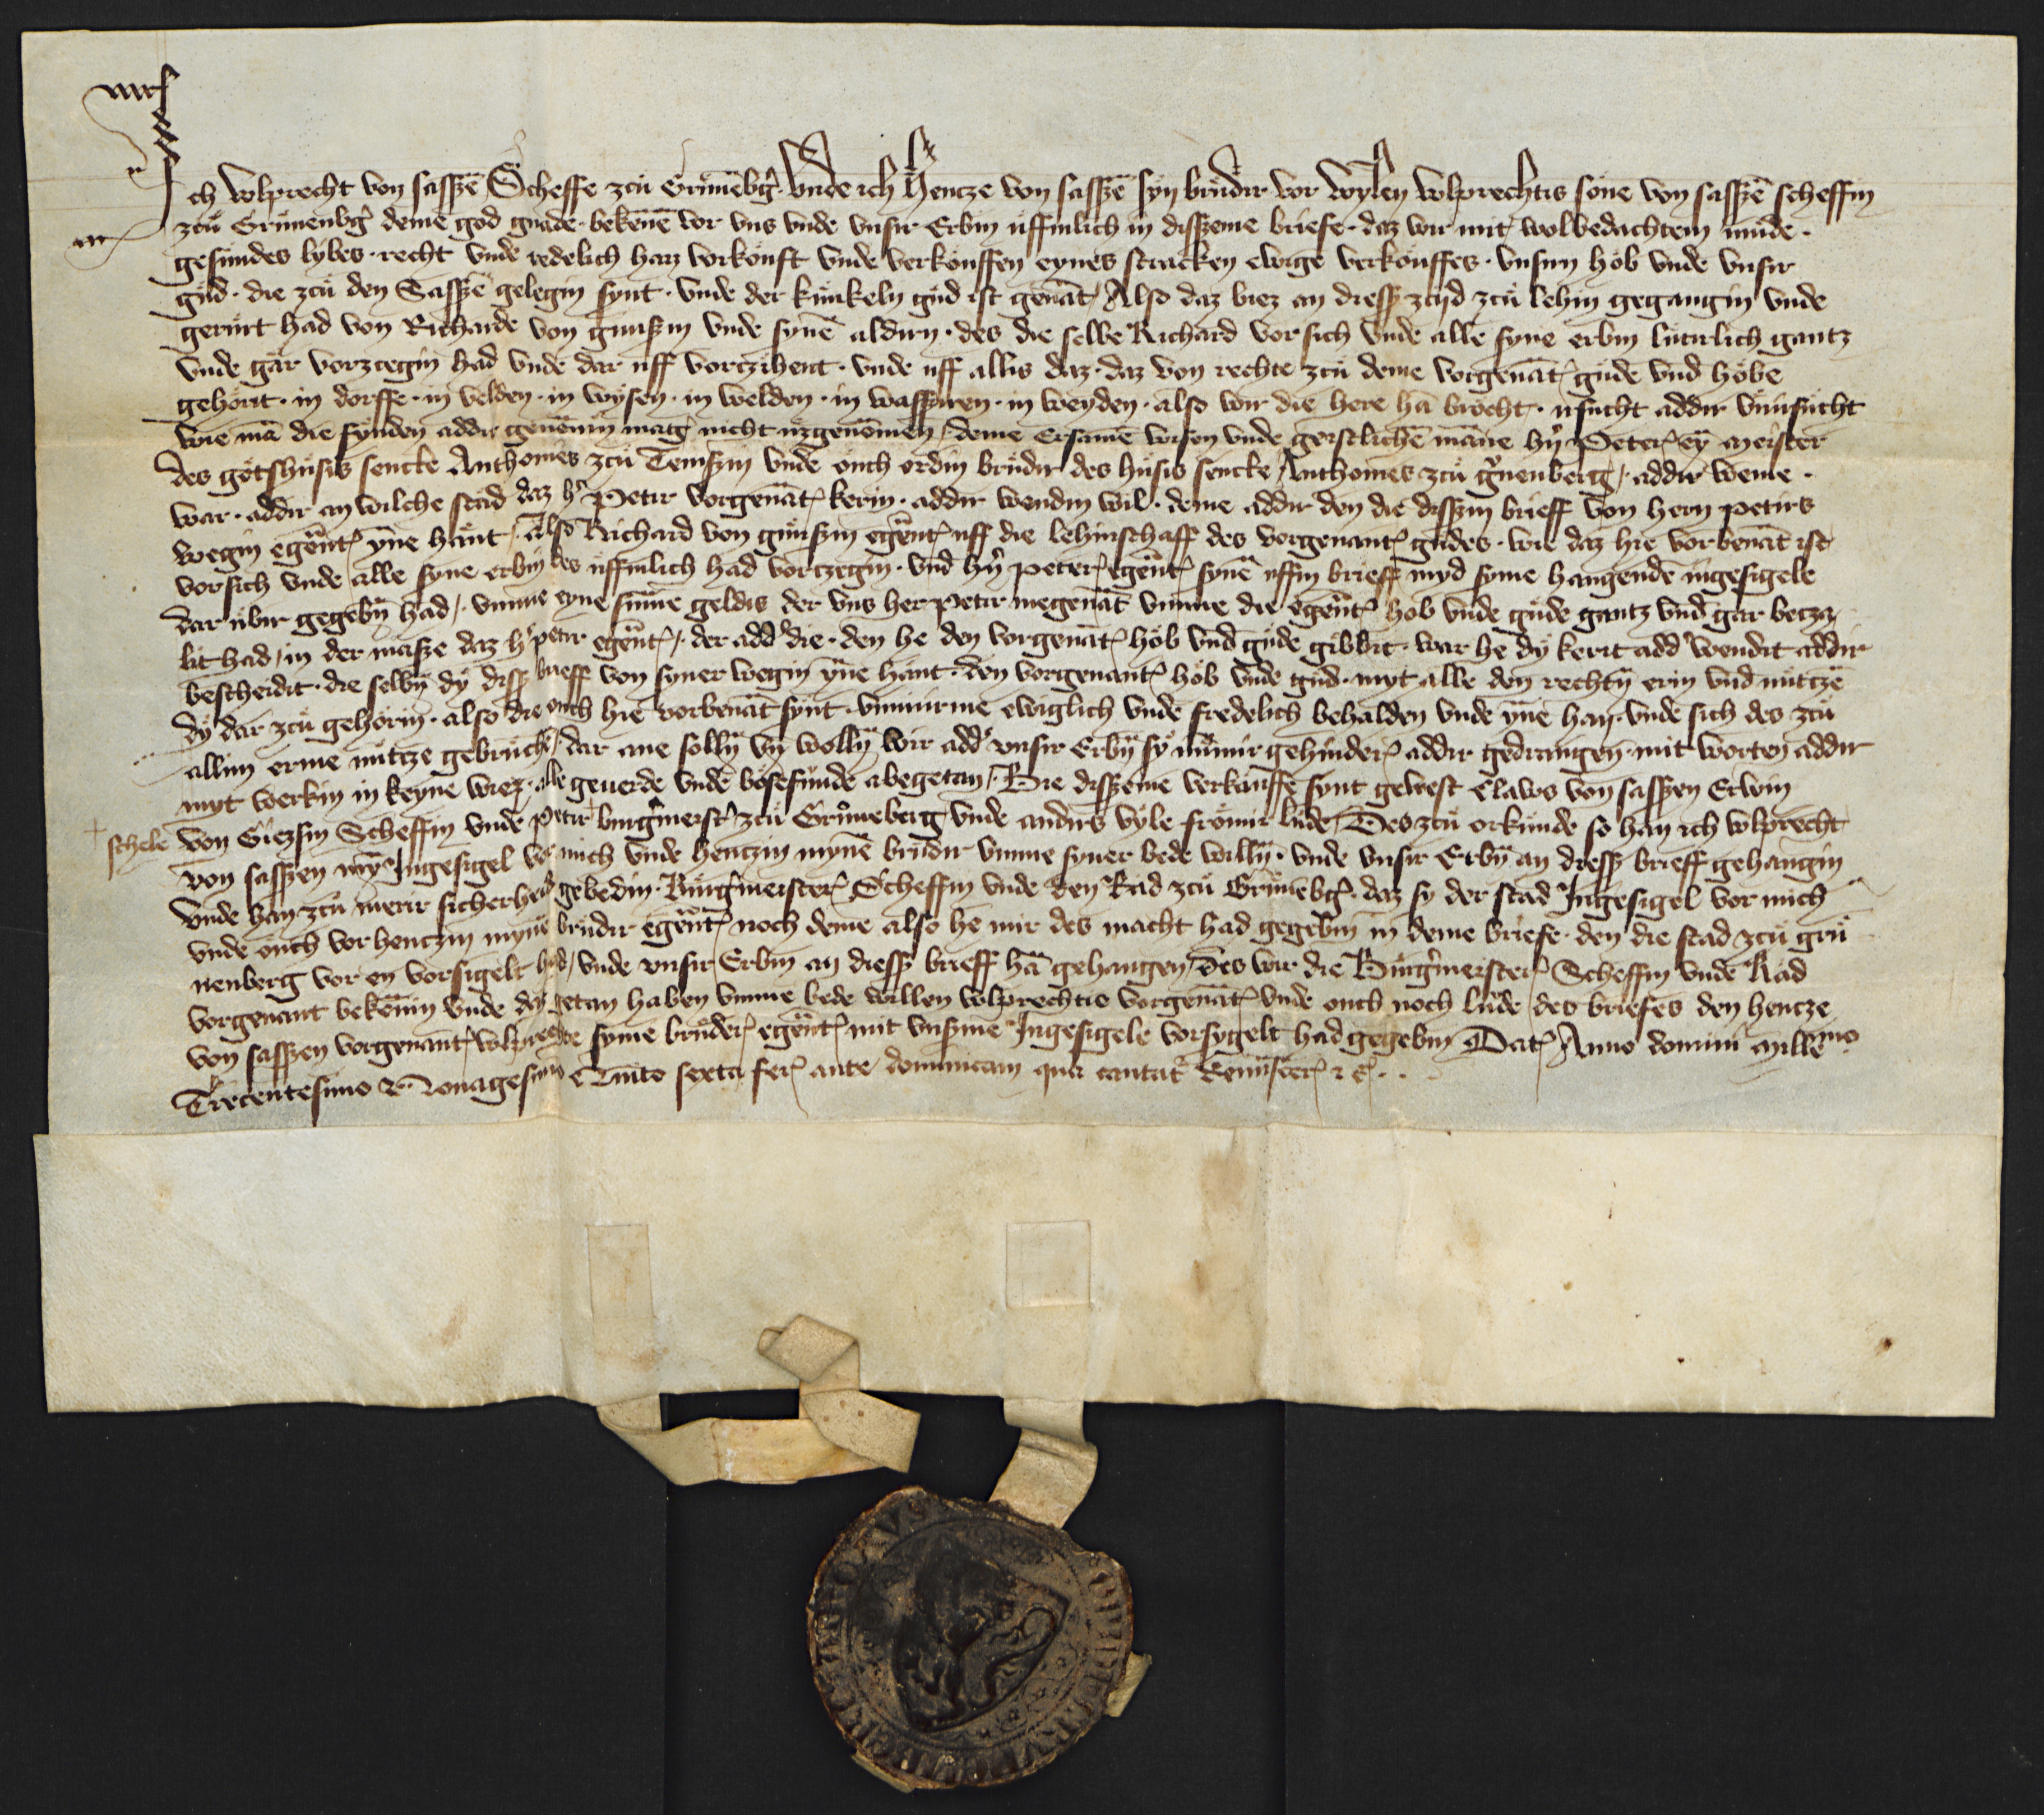 Ich Wolprecht von sasszē Scheffe zcu Grunēbg̃ Vnde ich Hencze von sasszē syn brudir vor wylen wolprechtis sone von sasszē scheffin
zcu Grunenbg̃ deme god gnade · bekēnē vor vns vnde vnsir Erbin uffinlich in disszeme briefe · daz wir mit wolbedachtem mude ·
gesundes lybes · recht vnde redelich han vorkouft vnde verkouffen eynes stracken ewigē verkouffes · vnsirn hob vnde vnsir
gud · die zcu den Sassze gelegin synt · vnde der kunkeln gud ist genāt / Also daz biez an diessz zcijd zcu lehin gegangin vnde
gerurt had von Richarde von gunszin vnde synē aldirn · des die selbe Richard vor sich vnde alle syne erbin luterlich gantz
vnde gar vorzcegin had vnde dar uff vorczihent · vnde uff allis daz · daz von rechte zcu deme vorgenāt gude vnd hobe
gehorit · in dorffe · in velden · in wysen · in welden · in wasszeren · in weyden · also wir die here hā brocht · irsucht addir vnirsucht
wie mā die fynden addir genēnin mag nicht uzgenomen / deme Ersamē wisen vnde geistlichē māne hn̄ Peter ey meister
des gotshusis sencte Anthonies zcu Temszin vnde ouch ordin brudir des husis sencte Anthonies zcu gr̄nenberg / addir weme ·
war · addir an wilche stad daz h̄ Petir vorgenāt kerin · addir wendin wil · deme addir den die disszin brieff von hern petirs
wegin egēnt ynne hant / Also Richard von gunszin egēnt uff die lehinschaff des vorgenant gudes · wie daz hie vor benāt ist
vor sich vnde alle syne erbin des uffinlich had vorczegin · vnd hn̄ peter egēnt synē uffin brieff myd syme hangendē ingesigele
dar ubir gegebin had / vmme eyne sūme geldis der vns her petir megenāt vmme die egēnt hob vnde gude gantz vnd gar becza
lit had / in der masze daz h̄ petir egēnt / der add' die · den he den vorgenāt hob vnd gude gibbit · war he dy kerit add' wendit addir
bescheidit · die selbin dy dissz brieff von syner wegin yne hant · den vorgenant hob vnde gud · myt alle den rechtin erin vnd nutczē
dy dar zcu gehorin · also die ouch hie vorbenāt synt · vmmirme ewiglich vnde fredelich behalden vnde yne han · vnde sich des zcu
allim erme nutze gebruchē / dar ane sollin vn̄ wollin wir add' vnsir Erbin sy nūmir gehinder addir gedrangen mit worten addir
myt werkin in keyne wiez · alle geuerde vnde bosefunde abegetan / Bie disszeme verkauffe synt gewest Claws von sasszen Erwin
+ schele von Giezsin Scheffin vnde petir burg̃meist' zcu Gruneberg vnde andirs vyle fromir lude / Des zcu orkunde so han ich wolprecht
von sasszen myn Ingesigel vor mich vnde henczin mynē brudir vmme syner bede willin · vnde vnsir Erbin an diessz brieff gehangin
vnde han zcu merir sicherheid gebedin · Burg̃meister Scheffin vnde den Rad zcu Grunēbg̃ · daz sy der stad Ingesigel vor mich
vnde ouch vor henczin mynē brudir egēnt noch deme also he mir des macht had gegebin in deme briefe · den die stad zcu gru
nenberg vor en vorsigelt had / vnde vnsir Erbin an diessz brieff hā gehangen / des wir die Burg̃meister Scheffin vnde Rad
vorgenant bekēnin vnde daz getan haben vmme bede willen wolprechtis vorgenāt vnde ouch noch lude des briefes den hencze
von sasszen vorgenant wolprechte syme bruder egēnt mit vnsme Ingesigele vorsygelt had gegebin Dat Anno domini Millemo
Trecentesimo & Nonagesimo Quīto sexta fer ante dominicam qua cantat' Reminiscer &c̄ ..